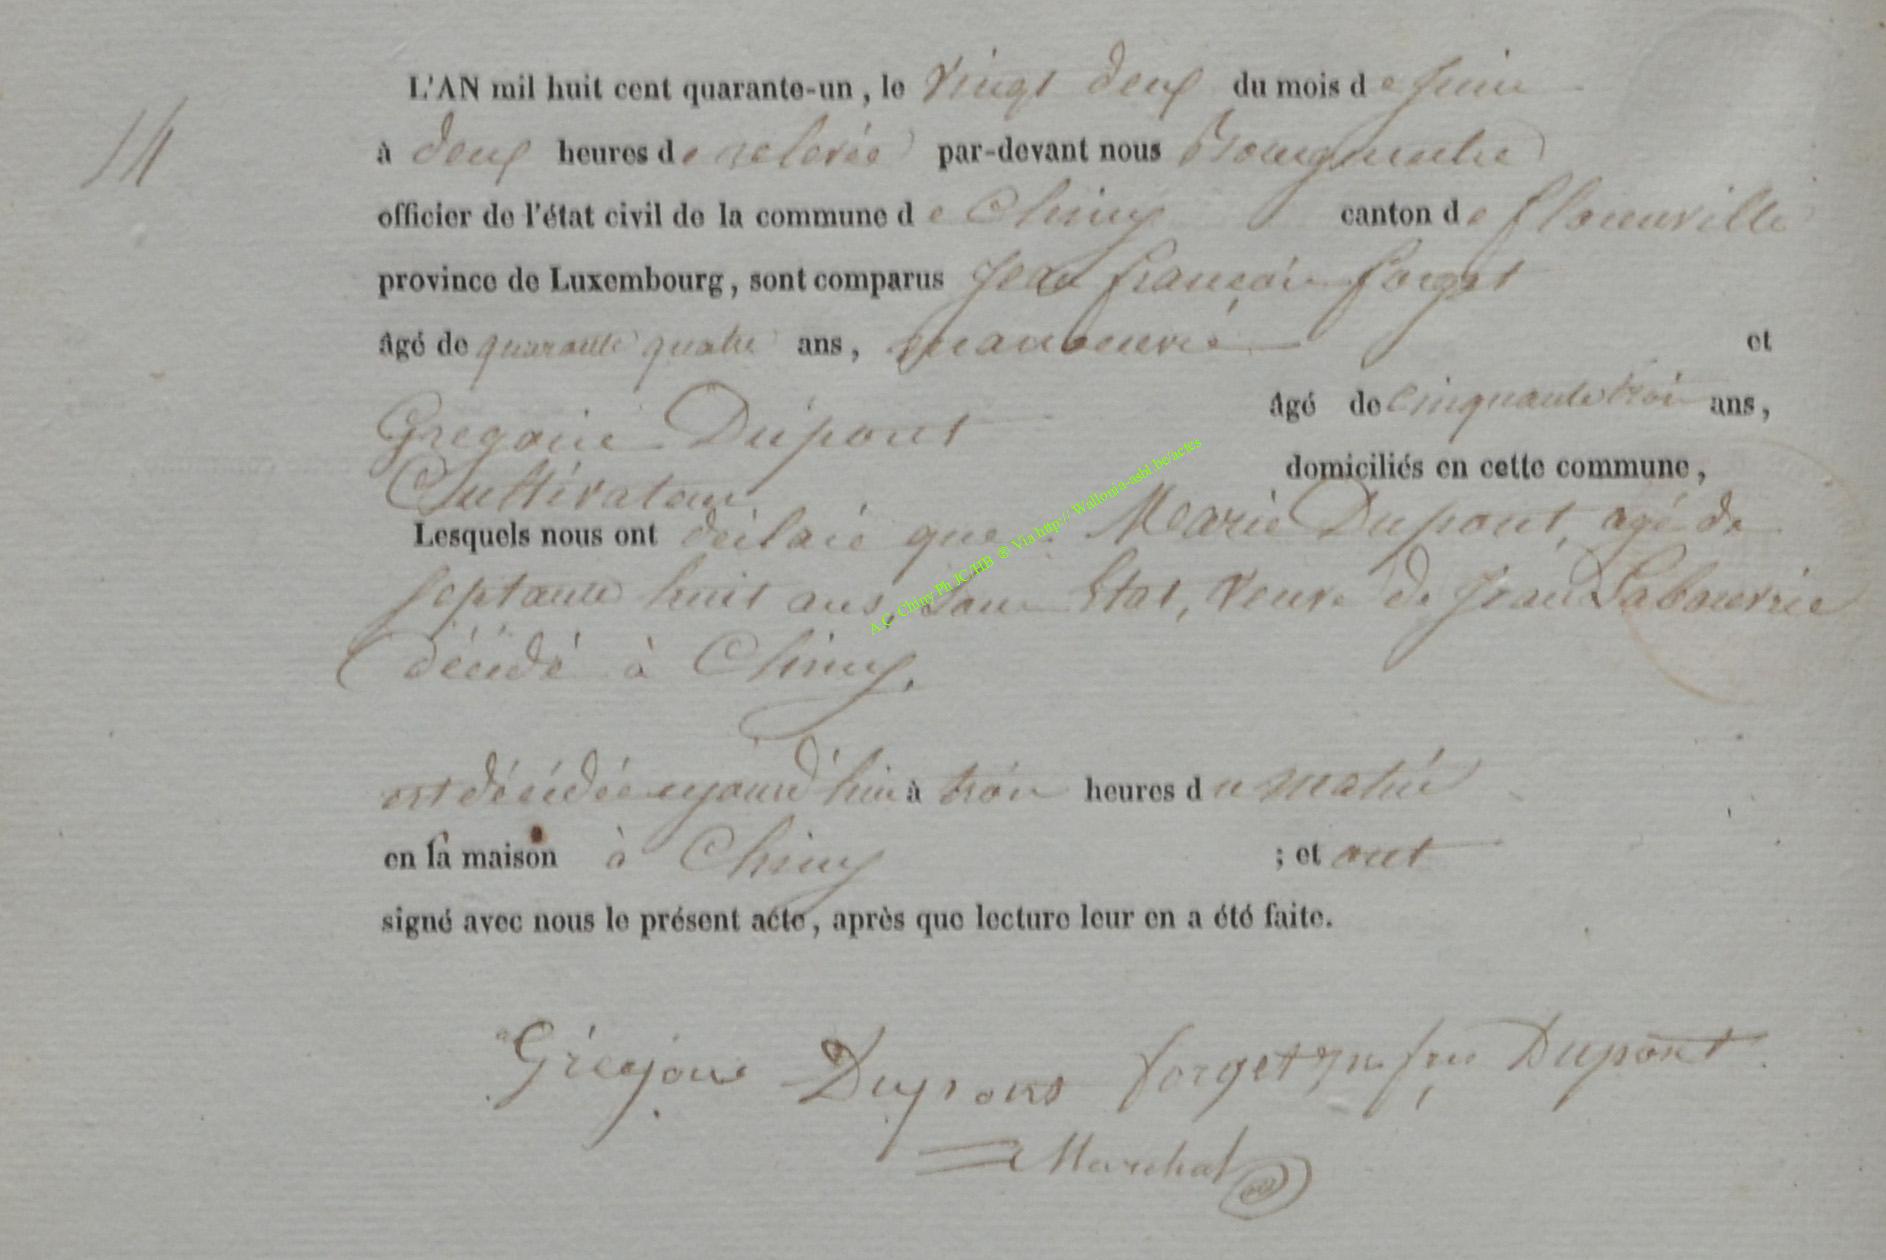 14
L'AN mil huit cent quarante-un, le Vingt deux du mois de Juin
à deux heures de relevée par-devant nous Bourgmestre
officier de l'état civil de la commune de Chiny canton de florenville
province de Luxembourg, sont comparus Jean françois forget
âgé de quarante quatre ans, manouvrié et
Gregoire Dupont âgé de Cinquante trois ans,
Cultivateur domiciliés en cette commune,
Lesquels nous ont déclaré que Marie Dupont, agé de
septante huit ans, sans Etat, Veuve de Jean Labouvrie
décédé à Chiny,
est décédée aujourd'hui à trois heures du matin
en sa maison à Chiny ; et ont
signé avec nous le présent acte, après que lecture leur en a été faite.
Grégoire Dupont forget Jn frs Dupont
Marchal
A.C. Chiny Ph JC/HB ® Via http:// Wallonia-asbl.be/actes